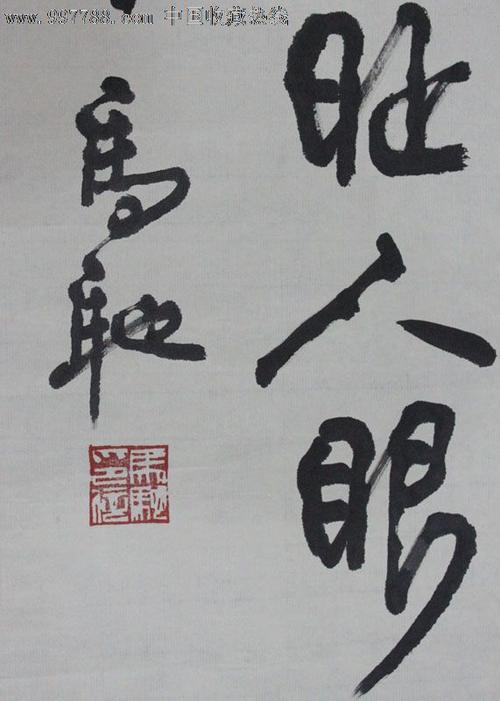 www.997788.com 中国收藏热线
人眼
馬馳
馬馳